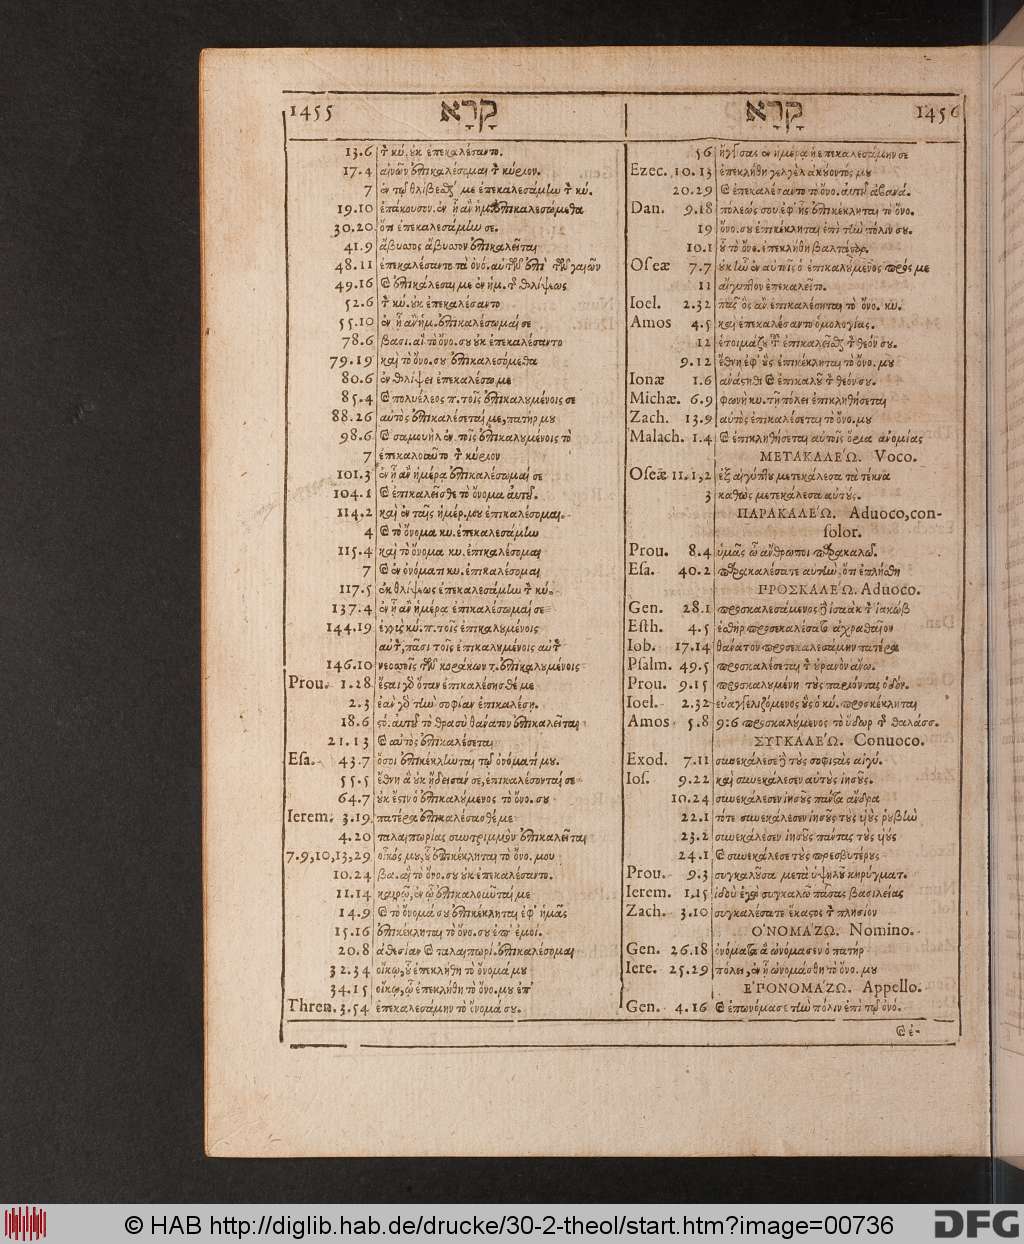 1455 קָרָא
13.6 τ̀ κύ. ȣκ ἐπεκαλέσαντο.
17.4 αἰνῶν ἐπικαλέσομαι τ̀ κύριον.
7 ἐν τῷ θλίβεσθαί με ἐπεκαλεσάμην τ̀ κύ.
19.10 ἐπάκουσον ἐν ᾗ ἂν ἡμ. ἐπικαλεσώμεθα
30.20 ὅτι ἐπεκαλεσάμην σε.
41.9 ἄβυσσος ἄβυσσον ἐπικαλεῖται
48.11 ἐπεκαλέσαντο τὰ ὀνό. αὐτῶν ἐπὶ τῶν γαιῶν
49.16 καὶ ἐπικάλεσαί με ἐν ἡμ. τ̀ θλίψεως
52.6 τ̀ κύ. ȣκ ἐπεκαλέσαντο
55.10 ἐν ᾗ ἂν ἡμ. ἐπικαλέσωμαί σε
78.6 βασι. αἳ τὸ ὄνο. σȣ ȣκ ἐπεκαλέσαντο
79.19 καὶ τὸ ὄνο. σȣ ἐπικαλεσόμεθα
80.6 ἐν θλίψει ἐπεκαλέσω με
85.4 καὶ πολυέλεος π. τοῖς ἐπικαλȣμένοις σε
88.26 αὐτὸς ἐπικαλέσεταί με, πατήρ μȣ
98.6 καὶ σαμουὴλ ἐν τοῖς ἐπικαλȣμένοις τὸ
7 ἐπεκαλοῦντο τ̀ κύριον
101.3 ἐν ᾗ ἂν ἡμέρᾳ ἐπικαλέσωμαί σε
104.1 καὶ ἐπικαλεῖσθε τὸ ὄνομα αὐτȣ.
114,2 καὶ ἐν ταῖς ἡμέρ. μȣ ἐπικαλέσομαι.
4 καὶ τὸ ὄνομα κυ. ἐπεκαλεσάμην
115.4 καὶ τὸ ὄνομα κυ. ἐπικαλέσομαι
7 καὶ ἐν ὀνόματι κυ. ἐπικαλέσομαι
117.5 ἐκ θλίψεως ἐπεκαλεσάμην τ̀ κύ.
137.4 ἐν ᾗ ἂν ἡμέρᾳ ἐπικαλέσωμαί σε
144.19 ἐγγὺς κύ. π. τοῖς ἐπικαλȣμένοις
αὐτ̀, πᾶσι τοῖς ἐπικαλȣμένοις αὐτ̀
146.10 νεοσσοῖς τῶν κοράκων τ. ἐπικαλȣμένοις
Prou. 1.28 ἔσται γὸ ὅταν ἐπικαλέσησθέ με
2.3 ἐὰν γὸ τὴν σοφίαν ἐπικαλέσῃ.
18.6 ςό. αὐτȣ τὸ θρασὺ θάνατον ἐπικαλεῖται
21.13 καὶ αὐτὸς ἐπικαλέσεται
Esa. 43.7 ὅσοι ἐπικέκληνται τῷ ὀνόματί μȣ.
55.5 ἔθνη ἃ ȣκ ᾔδεισάν σε, ἐπικαλέσονταί σε
64.7 ȣκ ἔςιν ὁ ἐπικαλȣμενος τὸ ὄνο. σȣ
Ierem. 3.19 πατέρα ἐπικαλέσασθέ με
4.20 ταλαιπωρίας συντριμμὸν ἐπικαλεῖται
7.9,10,13,29 οἶκός μȣ, ȣ ἐπικέκληται τὸ ὄνο. μου
10.24 βα. αἳ τὸ ὄνο. σȣ ȣκ ἐπεκαλέσαντο.
11.14 καιρῷ, ἐν ᾧ ἐπικαλοῦνταί με
14.9 καὶ τὸ ὄνομά σȣ ἐπικέκληται ἐφ' ἡμᾶς
15.16 ἐπικέκληται τὸ ὄνο. σȣ ἐπ' ἐμοί.
20.8 ἀθεσίαν καὶ ταλαιπωρί. ἐπικαλέσομαι
32.34 οἴκῳ, ȣ ἐπεκλήθη τὸ ὄνομά μȣ
34.15 οἴκῳ, ᾧ ἐπεκλήθη τὸ ὄνο. μȣ ἐπ'
Thren. 3.54 ἐπεκαλεσάμην τὸ ὄνομά σȣ.
קָרָא 1456
56 ἤγγισας ἐν ἡμέρᾳ ᾗ ἐπεκαλεσάμην σε
Ezec. 10.13 ἐπεκλήθη γελγὲλ ἀκȣοντος μȣ
20.29 καὶ ἐπεκαλέσαντο τὸ ὄνο. αὐτȣ ἀβανά.
Dan. 9.18 πόλεώς σου ἐφ' ἧς ἐπικέκληται τὸ ὄνο.
19 ὄνο. σȣ ἐπικέκληται ἐπὶ τὴν πόλιν σȣ.
10.1 ȣ τὸ ὄνο. ἐπεκλήθη βαλτάσαρ.
Oseæ 7.7 ȣκ ἦν ἐν αὐτοῖς ὁ ἐπικαλȣμενος πρός με
11 αἴγυπτον ἐπεκαλεῖτο.
Ioel. 2.32 πᾶς ὃς ἂν ἐπικαλέσηται τὸ ὄνο. κυ.
Amos 4.5 καὶ ἐπεκαλέσαντο ὁμολογίας.
12 ἑτοιμάζȣ τȣ ἐπικαλεῖσθαι τ̀ θεόν σȣ.
9.12 ἔθνη ἐφ' ȣς ἐπικέκληται τὸ ὄνο. μȣ
Ionæ 1.6 ἀνάςηθι καὶ ἐπικαλȣ τ̀ θεόν σȣ.
Michæ. 6.9 φωνὴ κυ. τῇ πόλει ἐπικληθήσεται
Zach. 13.9 αὐτὸς ἐπικαλέσεται τὸ ὄνο. μȣ
Malach. 1.4 καὶ ἐπικληθήσεται αὐτοῖς ὅρια ἀνομίας
ΜΕΤΑΚΑΛΕ΄Ω. Voco.
Oseæ 11.1,2 ἐξ αἰγύπτȣ μετεκάλεσα τὰ τέκνα
3 καθὼς μετεκάλεσα αὐτȣς.
ΠΑΡΑΚΑΛΕ΄Ω. Aduoco, con-
solor.
Prou. 8.4 ὑμᾶς ὦ ἄνθρωποι παρακαλῶ.
Esa. 40.2 παρακαλέσατε αὐτὴν, ὅτι ἐπλήσθη
ΠΡΟΣΚΑΛΕ΄Ω. Aduoco.
Gen. 28.1 προσκαλεσάμενος δὲ ἰσαὰκ τ̀ ἰακώβ
Esth. 4.5 ἐσθὴρ προσεκαλέσατο ἀχραθαῖον
Iob. 17.14 θάνατον προσεκαλεσάμην πατέρα
Psalm. 49.5 προσκαλέσεται τ̀ ȣρανὸν ἄνω.
Prou. 9.15 προσκαλȣμένη τȣς παριόντας ὁδόν.
Ioel. 2.32 εὐαγγελιζόμενος ȣς ὁ κύ. προσκέκληται
Amos 5.8 9.6 προσκαλȣμενος τὸ ὕδωρ τ̀ θαλάσσ.
ΣΥΓΚΑΛΕ΄Ω. Conuoco.
Exod. 7.11 συνεκάλεσε δὲ τȣς σοφιςὰς αἰγύ.
Ios. 9.22 καὶ συνεκάλεσεν αὐτȣς ἰησȣς.
10.24 συνεκάλεσεν ἰησȣς πάντα ἄνδρα
22.1 τότε συνεκάλεσεν ἰησȣς τȣς υἱȣς ῥυβὴν
23.2 συνεκάλεσεν ἰησȣς πάντας τȣς υἱȣς
24.1 καὶ συνεκάλεσε τȣς πρεσβυτέρȣς
Prou. 9.3 συγκαλȣσα μετὰ ὑψηλȣ κηρύγματ.
Ierem. 1.15 ἰδοὺ ἐγὼ συγκαλῶ πάσας βασιλείας
Zach. 3.10 συγκαλέσατε ἕκαςος τ̀ πλησίον
Ο᾿ΝΟΜΑ΄ΖΩ. Nomino.
Gen. 26.18 ὀνόματα ἃ ὠνόμασεν ὁ πατήρ
Iere. 25.29 πόλει, ἐν ᾗ ὠνομάσθη τὸ ὄνο. μȣ
Ε᾿ΠΟΝΟΜΑ΄ΖΩ. Appello.
Gen. 4.16 καὶ ἐπωνόμασε τὴν πόλιν ἐπὶ τῷ ὀνό.
καὶ ἐ-
© HAB http://diglib.hab.de/drucke/30-2-theol/start.htm?image=00736
DFG